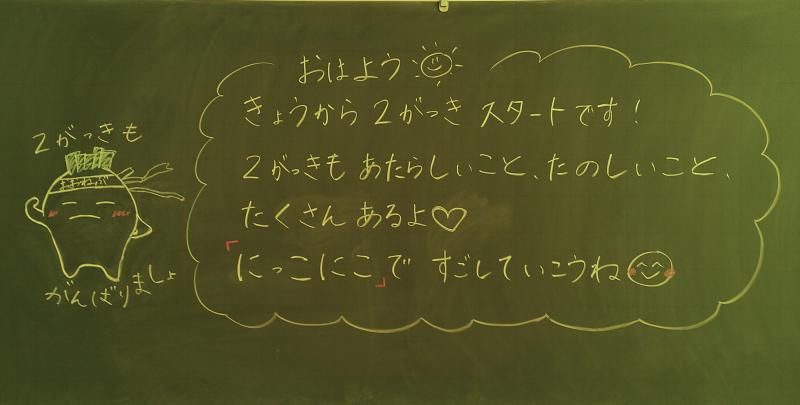 おはよう
きょうから 2がっき スタートです!
2がっきも あたらしいこと、たのしいこと、
たくさん あるよ♡
「にっこにこ」で すごしていこうね
2がっきも
がんばりましょ